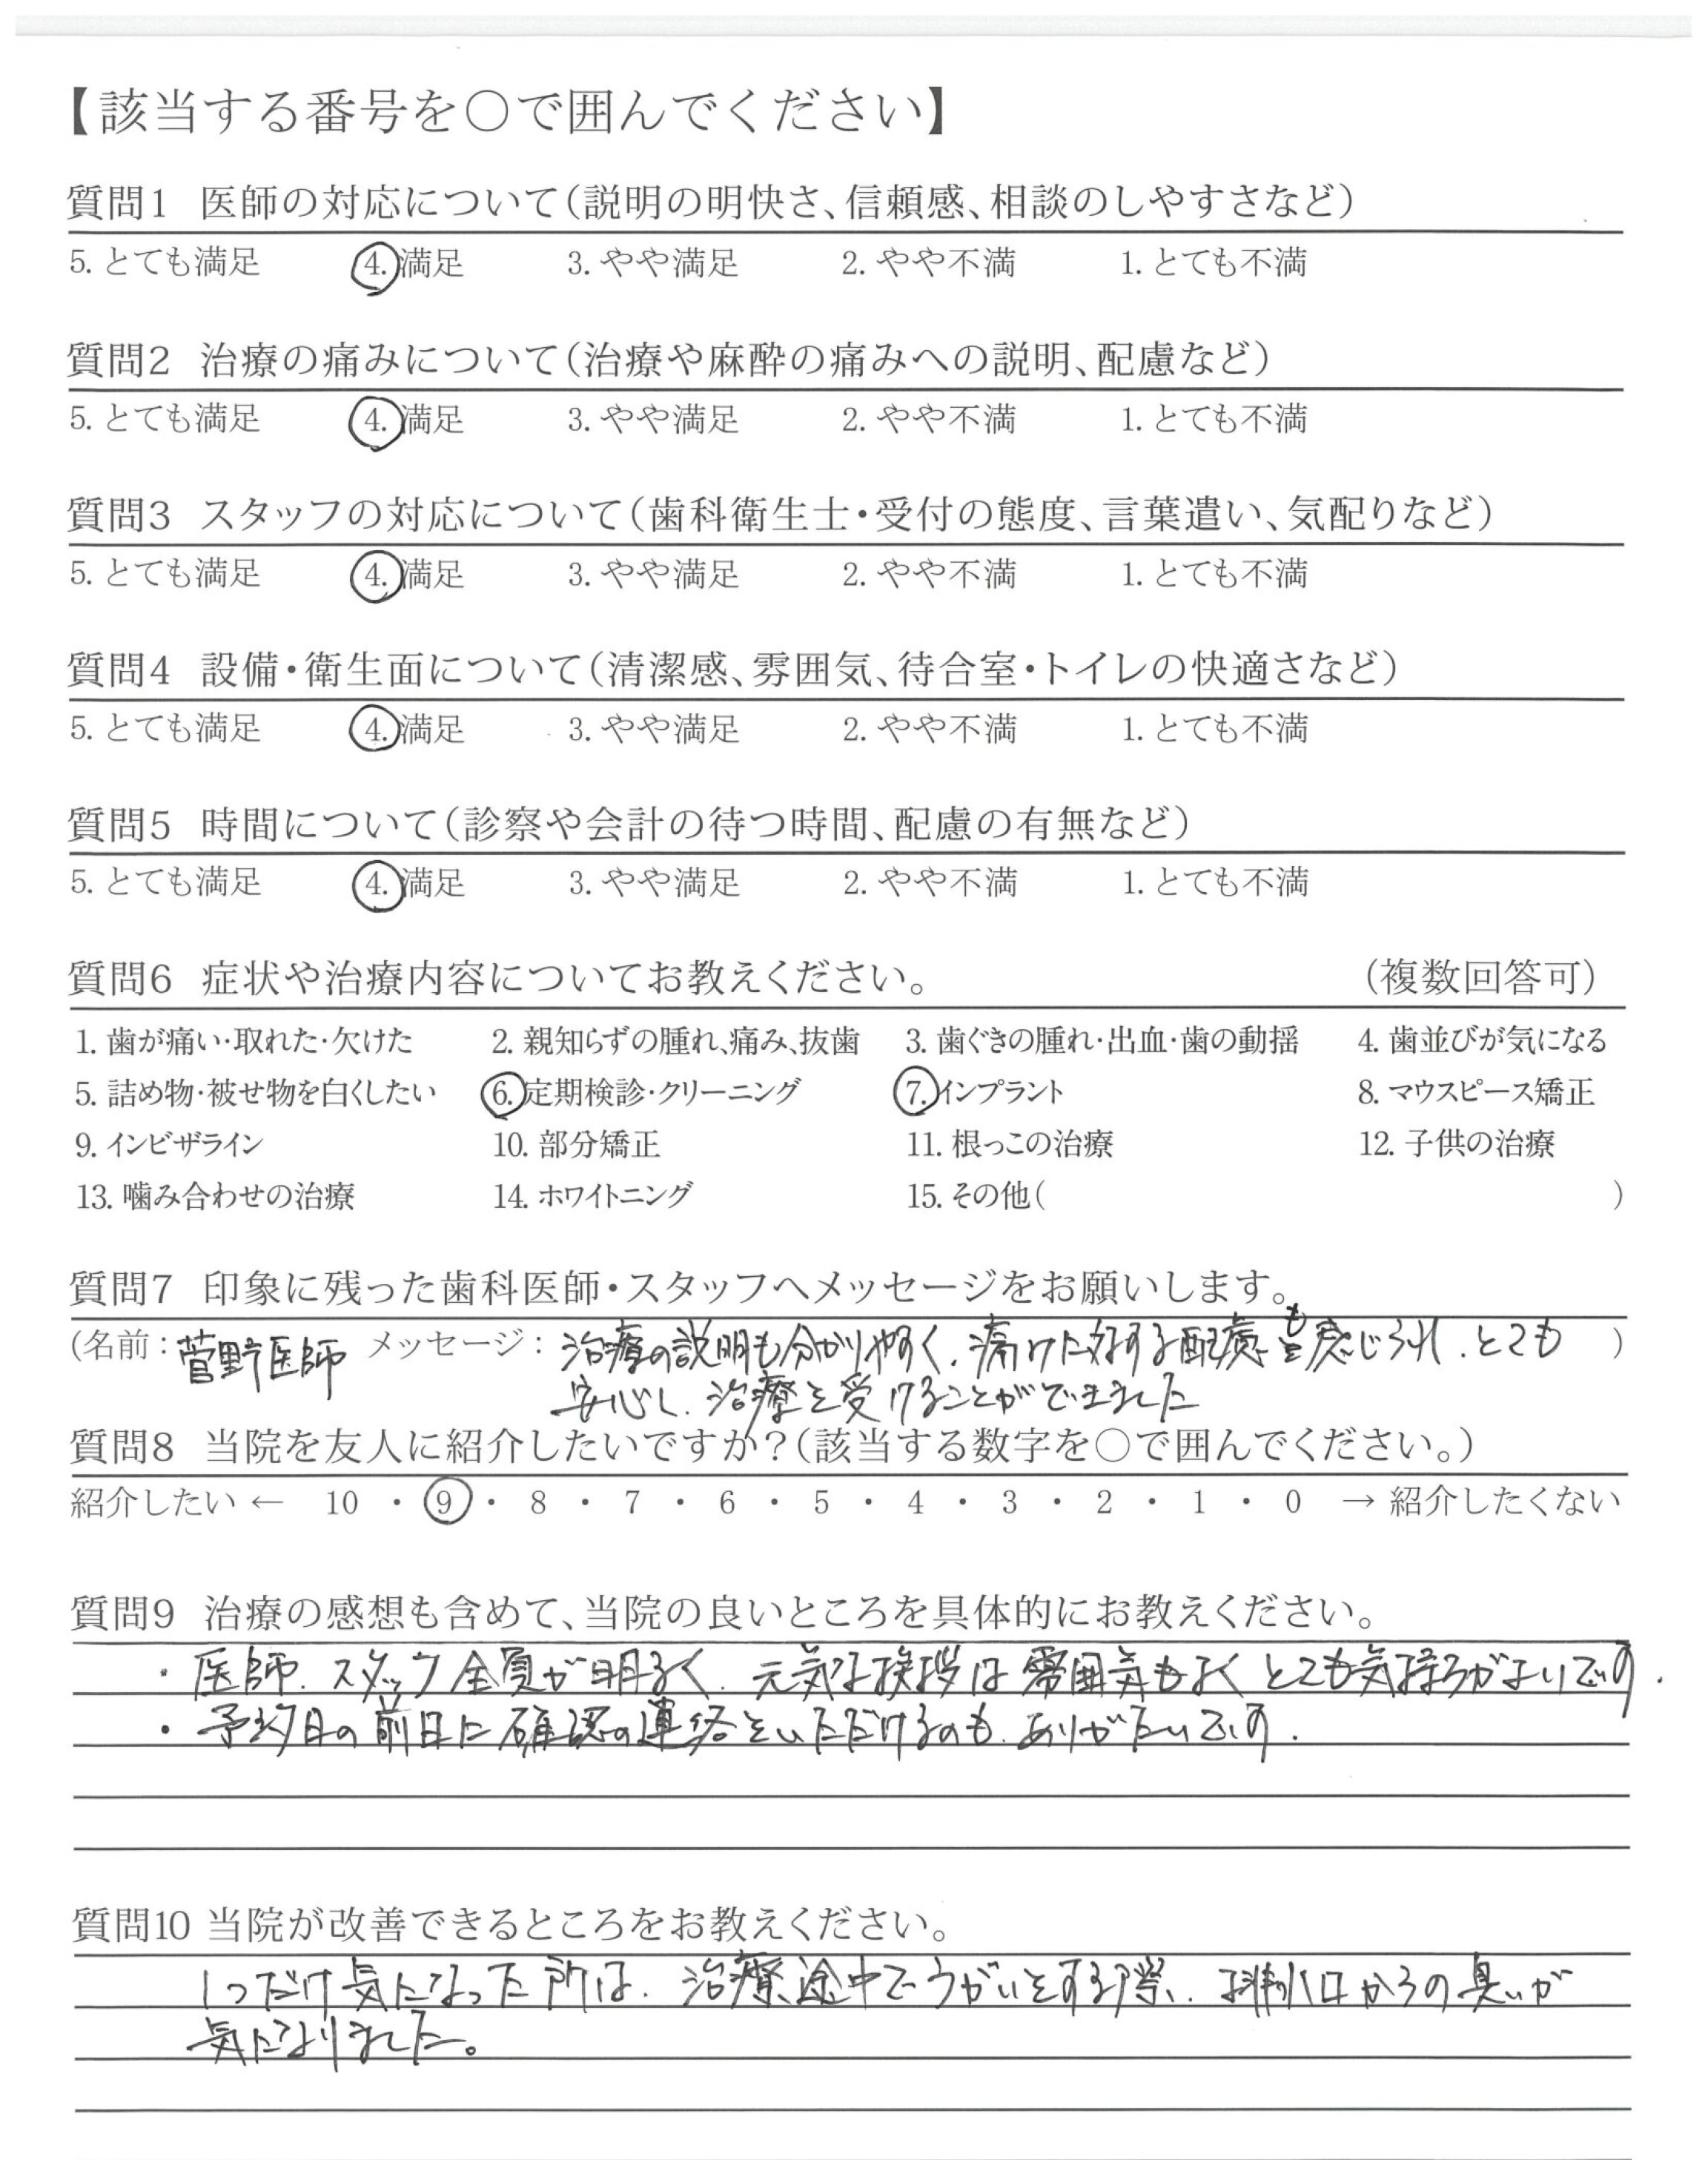 【該当する番号を○で囲んでください】
質問1 医師の対応について(説明の明快さ、信頼感、相談のしやすさなど)
5. とても満足 4. 満足 3. やや満足 2. やや不満 1. とても不満
質問2 治療の痛みについて(治療や麻酔の痛みへの説明、配慮など)
5. とても満足 4. 満足 3. やや満足 2. やや不満 1. とても不満
質問3 スタッフの対応について(歯科衛生士・受付の態度、言葉遣い、気配りなど)
5. とても満足 4. 満足 3. やや満足 2. やや不満 1. とても不満
質問4 設備・衛生面について(清潔感、雰囲気、待合室・トイレの快適さなど)
5. とても満足 4. 満足 3. やや満足 2. やや不満 1. とても不満
質問5 時間について(診察や会計の待つ時間、配慮の有無など)
5. とても満足 4. 満足 3. やや満足 2. やや不満 1. とても不満
質問6 症状や治療内容についてお教えください。 (複数回答可)
1. 歯が痛い・取れた・欠けた 2. 親知らずの腫れ、痛み、抜歯 3. 歯ぐきの腫れ・出血・歯の動揺 4. 歯並びが気になる
5. 詰め物・被せ物を白くしたい 6. 定期検診・クリーニング 7. インプラント 8. マウスピース矯正
9. インビザライン 10. 部分矯正 11. 根っこの治療 12. 子供の治療
13. 噛み合わせの治療 14. ホワイトニング 15. その他( )
質問7 印象に残った歯科医師・スタッフへメッセージをお願いします。
(名前: 菅野医師 メッセージ: 治療の説明も分かりやすく、痛みに対する配慮も感じられ、とても )
安心し、治療を受けることができました
質問8 当院を友人に紹介したいですか?(該当する数字を○で囲んでください。)
紹介したい ← 10 ・ 9 ・ 8 ・ 7 ・ 6 ・ 5 ・ 4 ・ 3 ・ 2 ・ 1 ・ 0 → 紹介したくない
質問9 治療の感想も含めて、当院の良いところを具体的にお教えください。
・医師、スタッフ全員が明るく、元気な挨拶は雰囲気もよくとても気持ちがよいです.
・予約日の前日に確認の連絡をいただけるのも、ありがたいです.
質問10 当院が改善できるところをお教えください。
1つだけ気になった所は、治療途中でうがいをする際、排水口からの臭いが
気になりました。